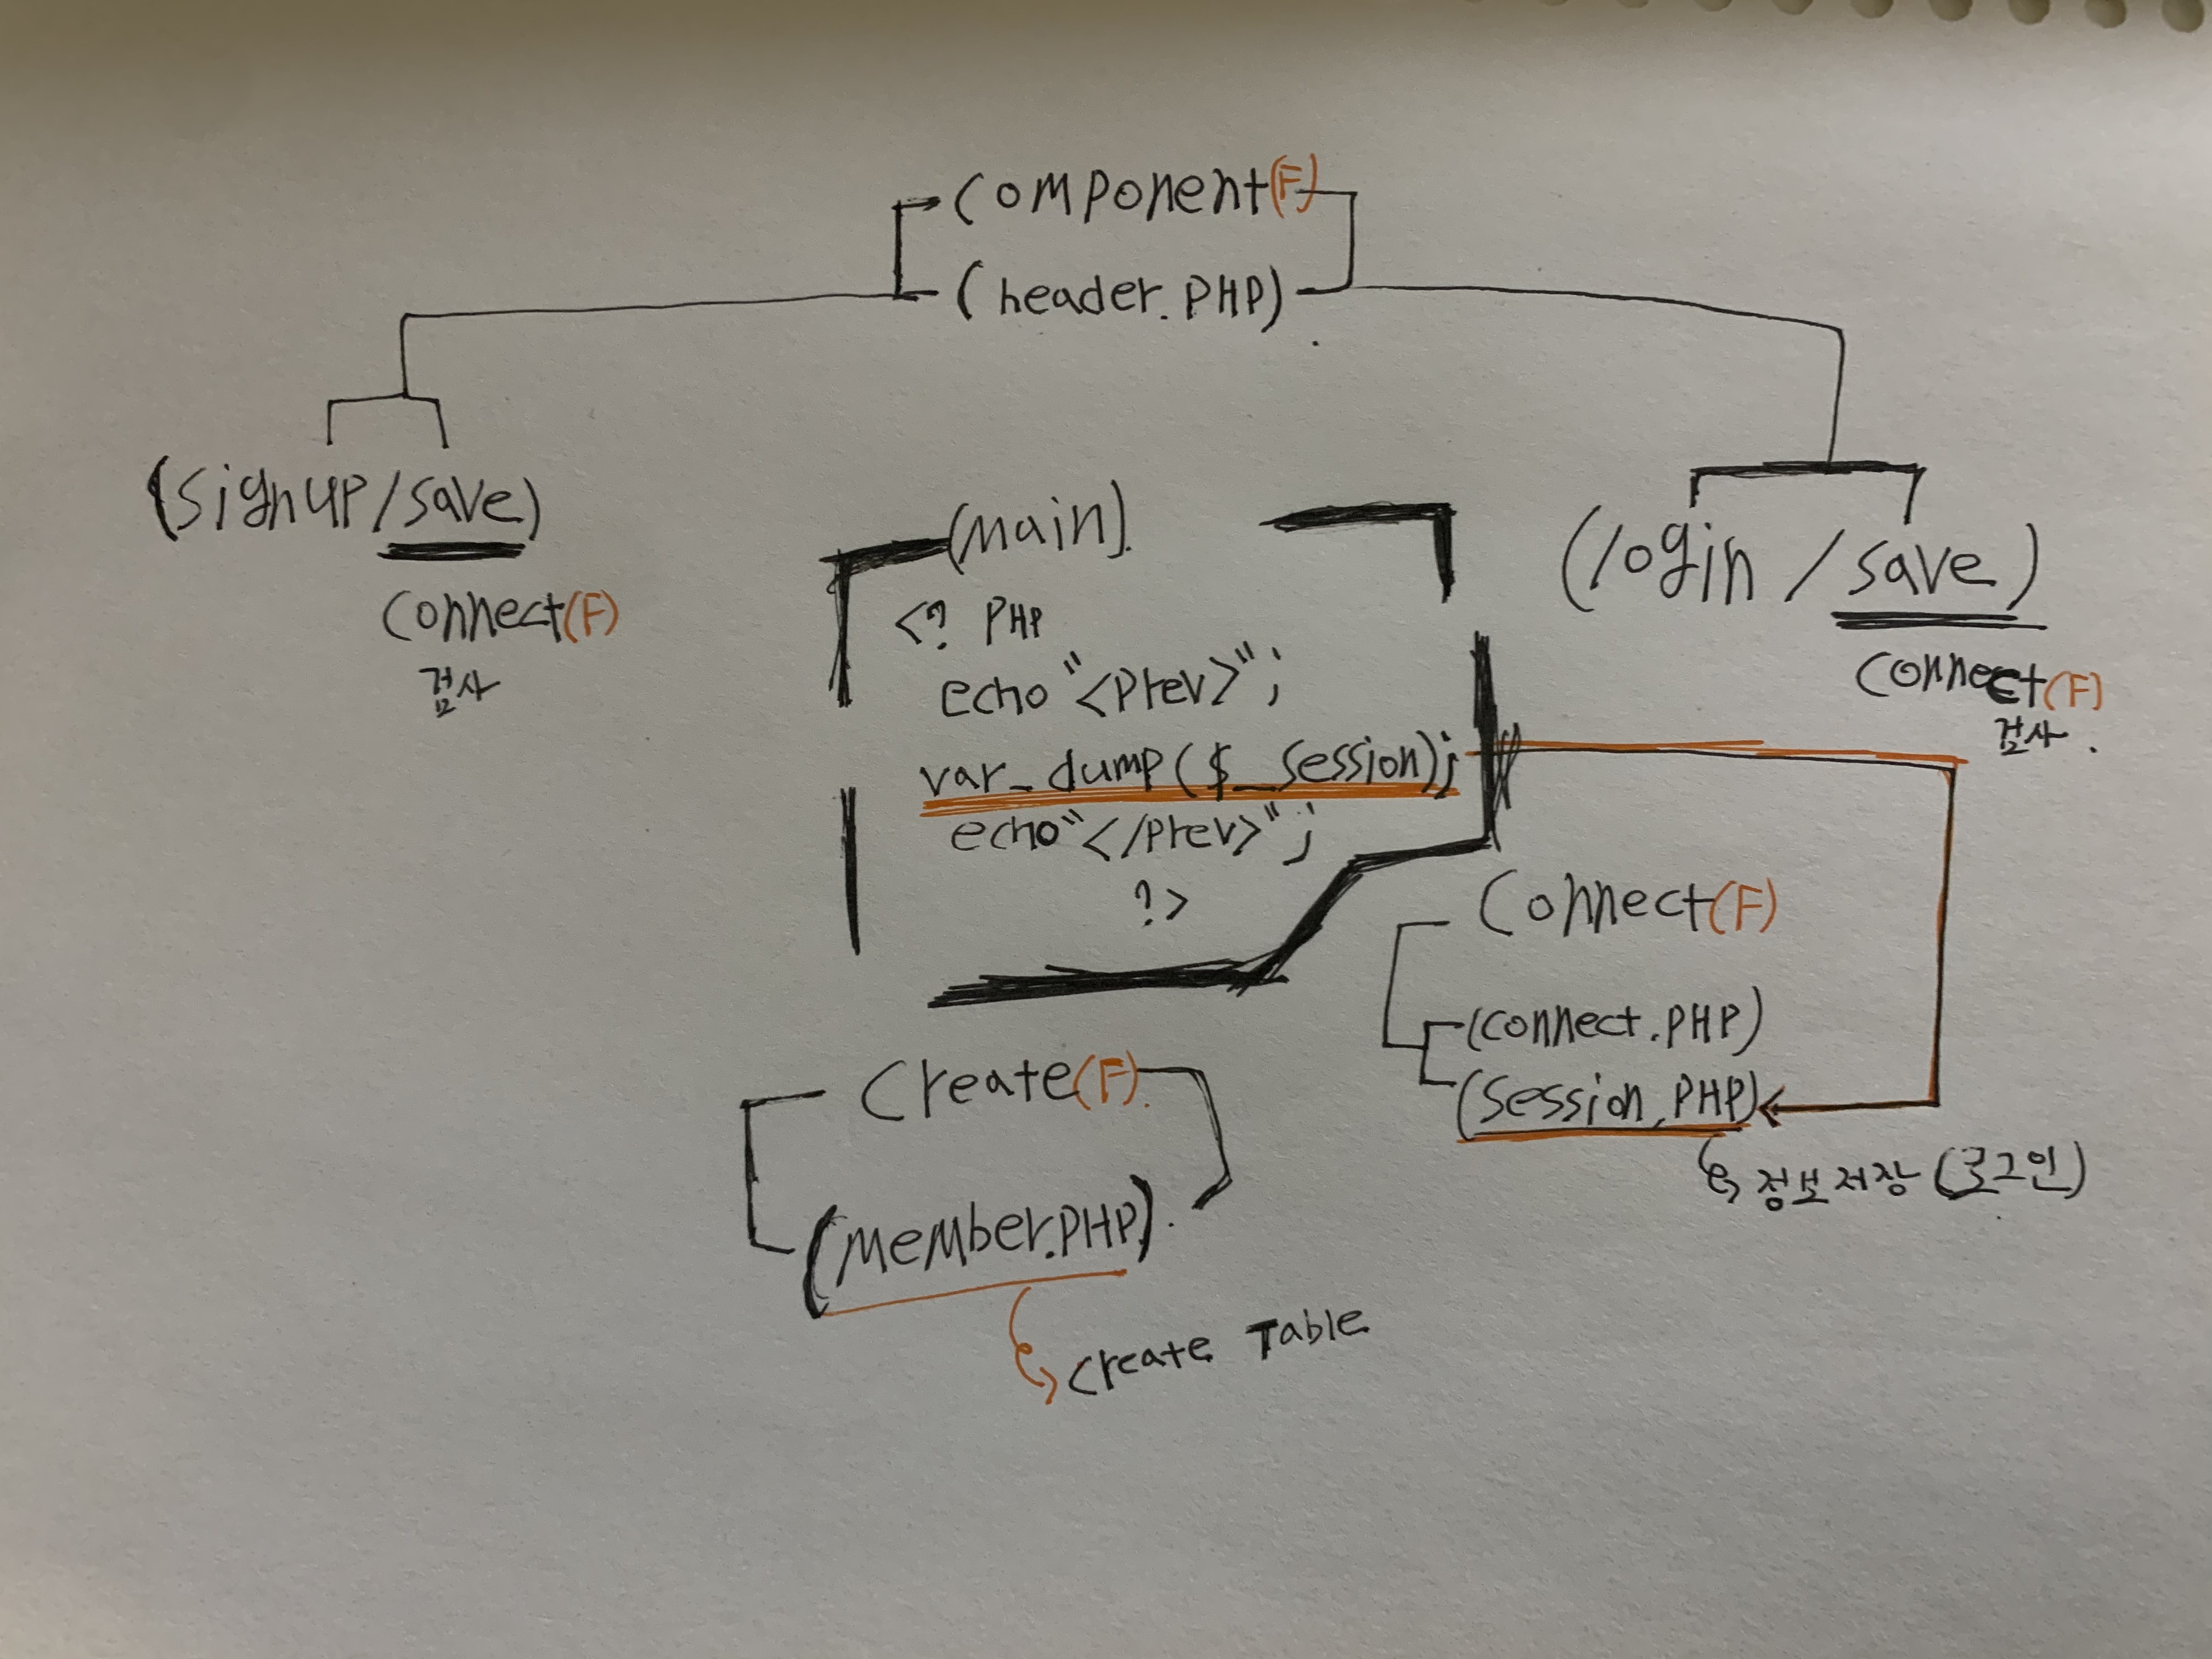 Component(F)
(header.PHP)
(signup/save)
Connect(F)
검사
(main)
<? PHP
echo"<Prev>";
var_dump($_session);
echo"</Prev>";
?>
(login/save)
Connect(F)
검사.
Connect(F)
(connect.PHP)
(Session.PHP)
정보저장(로그인)
Create(F).
(MEMber.PHP).
Create Table